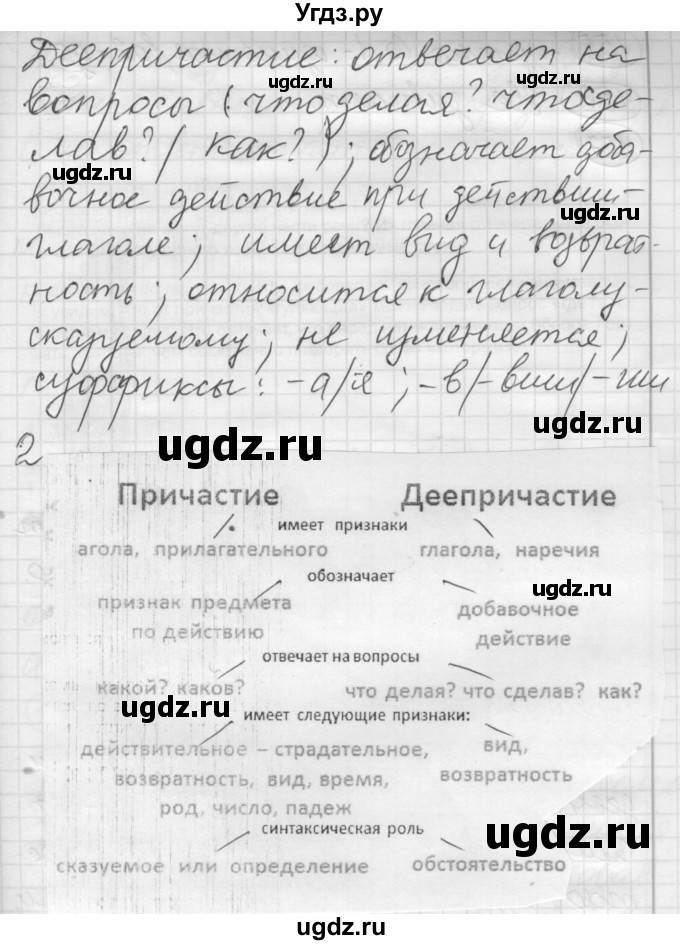 Угдз.ру
Деепричастие: отвечает на
вопросы (что делая? что сде-
лав?/ как?); обозначает доба-
вочное действие при действии-
глаголе; имеет вид и возврат-
ность; относится к глаголу-
сказуемому; не изменяется;
суффиксы: -а/я; -в/-вши/-ши
ugdz.ru
ugdz.ru
ugdz.ru
ugdz.ru
2
ugdz.ru
ugdz.ru
Причастие Деепричастие
имеет признаки
агола, прилагательного глагола, наречия
обозначает
ugdz.ru
признак предмета добавочное
по действию действие
отвечает на вопросы
какой? каков? что делая? что сделав? как?
ugdz.ru
имеет следующие признаки:
действительное – страдательное, вид,
возвратность, вид, время, возвратность
род, число, падеж
ugdz.ru
синтаксическая роль
сказуемое или определение обстоятельство
ugdz.ru